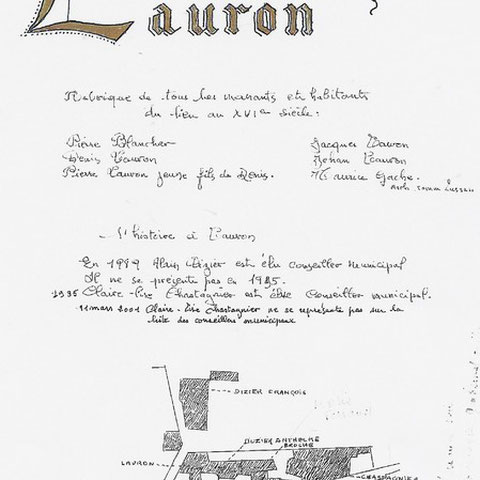 Lauron
Rubrique de tous les manants et habitants
du lieu au XVIème siècle:
Pierre Blancher
Denis Lauron
Pierre Lauron jeune fils de Denis.
Jacques Lauron
Johan Lauron
Maurice Gache.
arch. comm. Lussas
L'histoire à Lauron
En 1989 Alain Dizier est élu conseiller municipal
Il ne se présente pas en 1995.
1995 Claire-Lise Chastagnier est élue Conseiller municipal.
11 mars 2001 Claire-Lise Chastagnier ne se représente pas sur la
liste des conseillers municipaux
DIZIER FRANÇOIS
DUZIER ANTHELME
BROCHE
LAURON
CHASTAGNIER